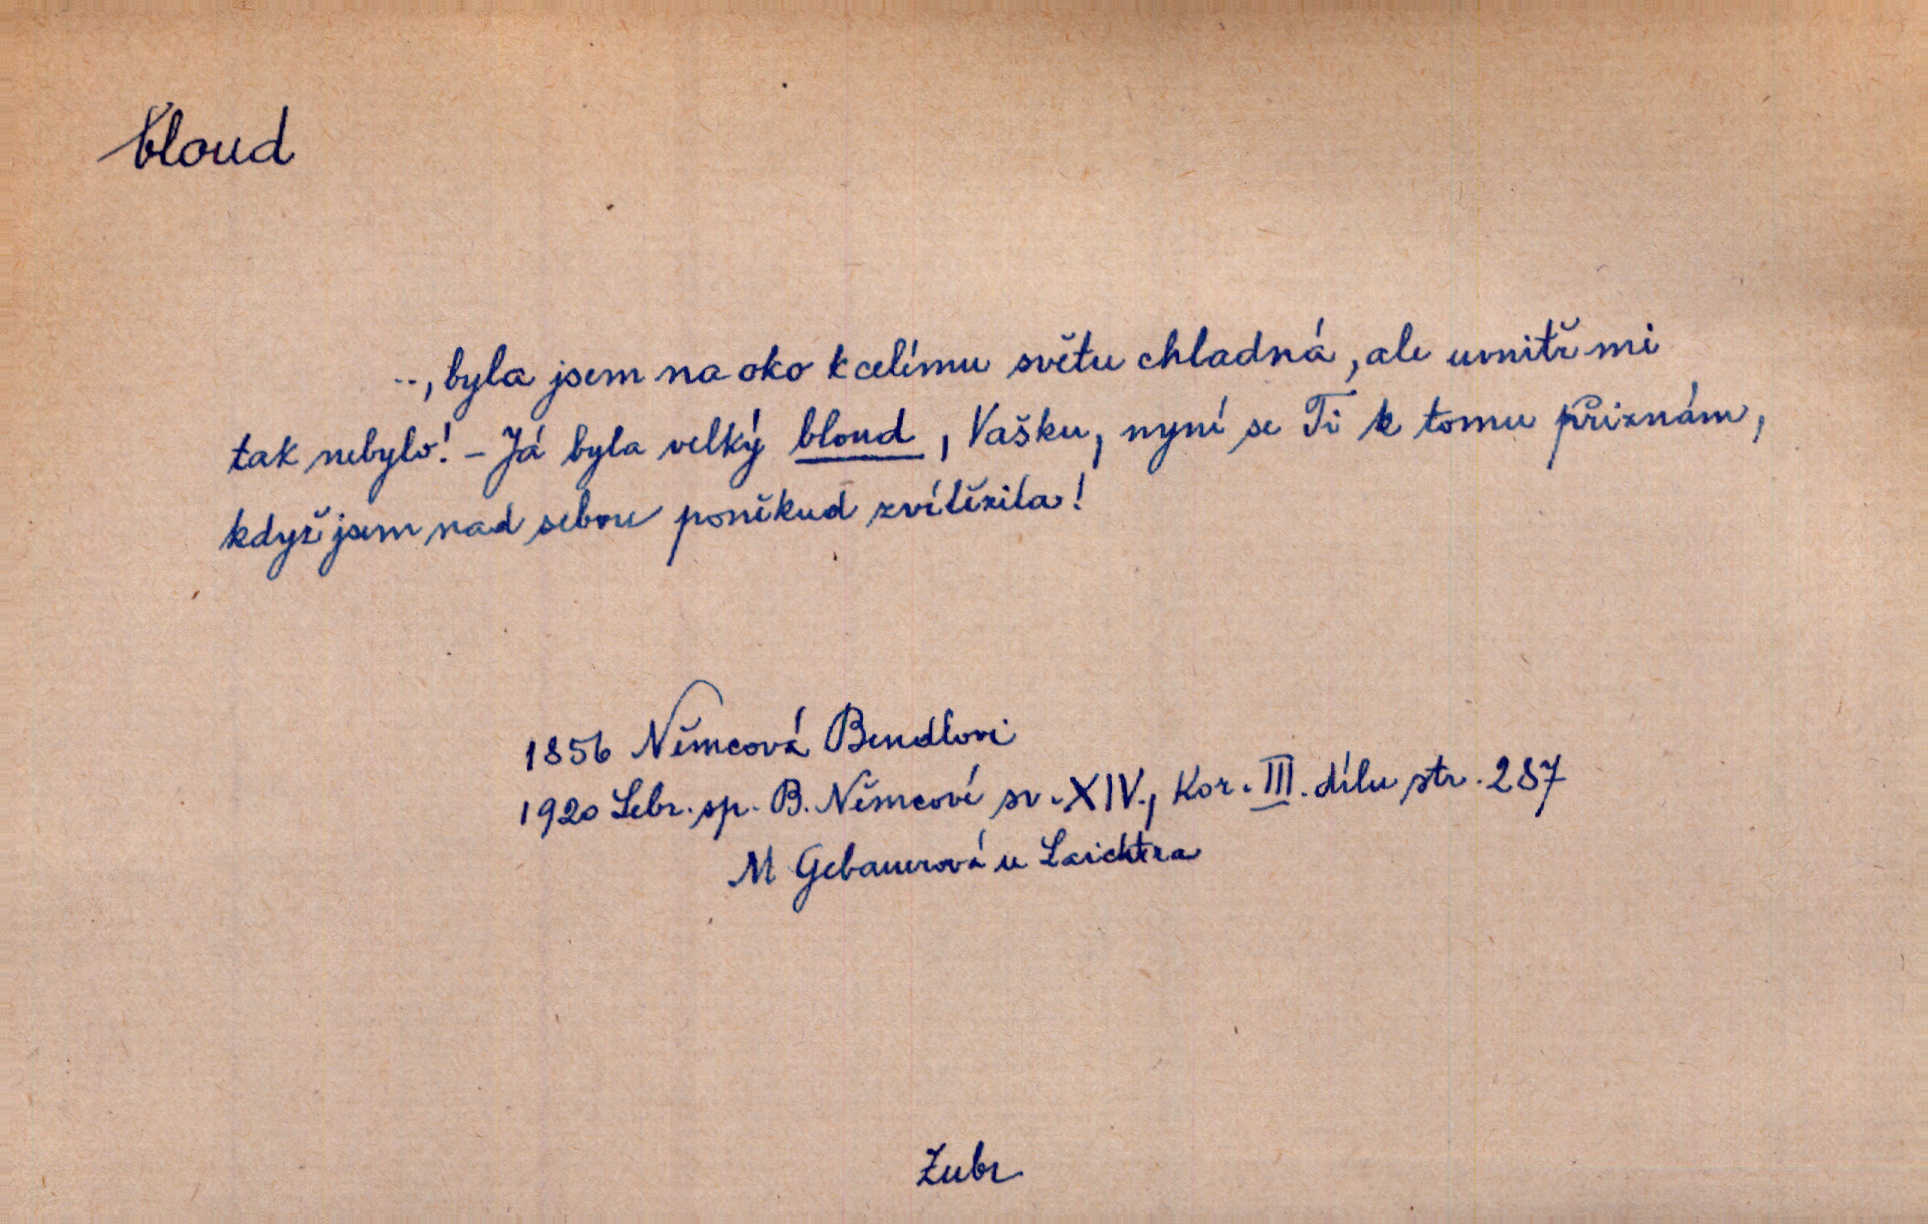 bloud
.., byla jsem na oko k celému světu chladná, ale uvnitř mi
tak nebylo! – Já byla velký bloud, Vašku, nyní se Ti k tomu přiznám,
když jsem nad sebou poněkud zvítězila!
1856 Němcová Bendlovi
1920 Sebr. sp. B. Němcové sv. XIV., Kor. III. dílu str. 287
M Gebauerová u Laichtra
Zubr